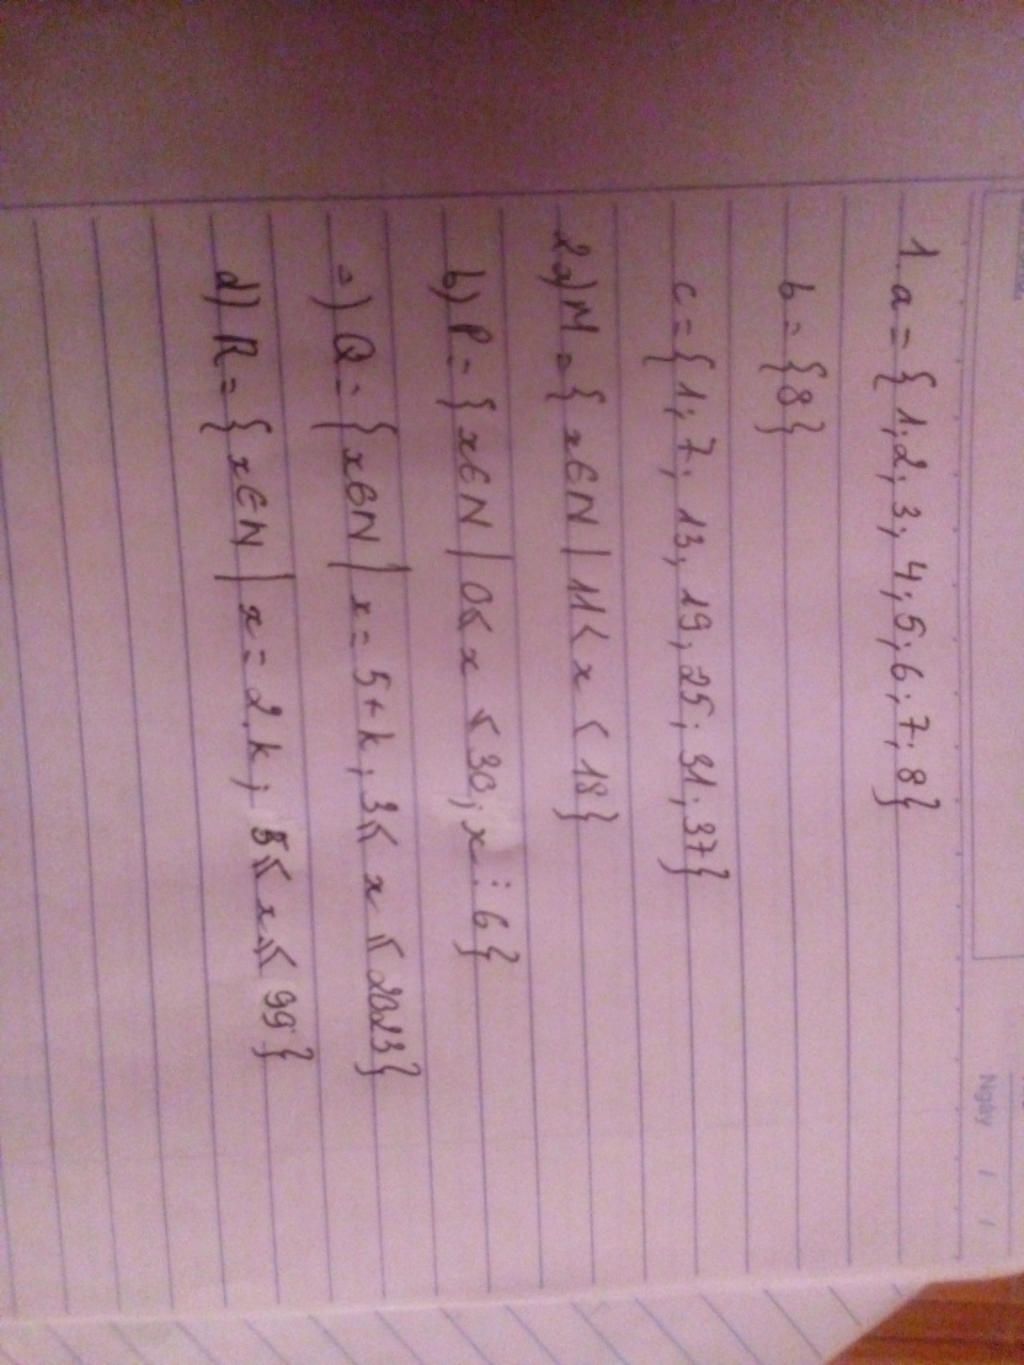 Ngày / /
1. a = { 1; 2; 3; 4; 5; 6; 7; 8}
b = {8}
c = { 1; 7; 13; 19; 25; 31; 37}
2a) M = { x∈N | 11 < x < 18}
b) P = { x∈N | 0 ≤ x ≤ 30; x ⋮ 6}
c) Q = { x∈N | x = 5 + k; 3 ≤ x ≤ 2023}
d) R = { x∈N | x = 2.k; 5 ≤ x ≤ 99}